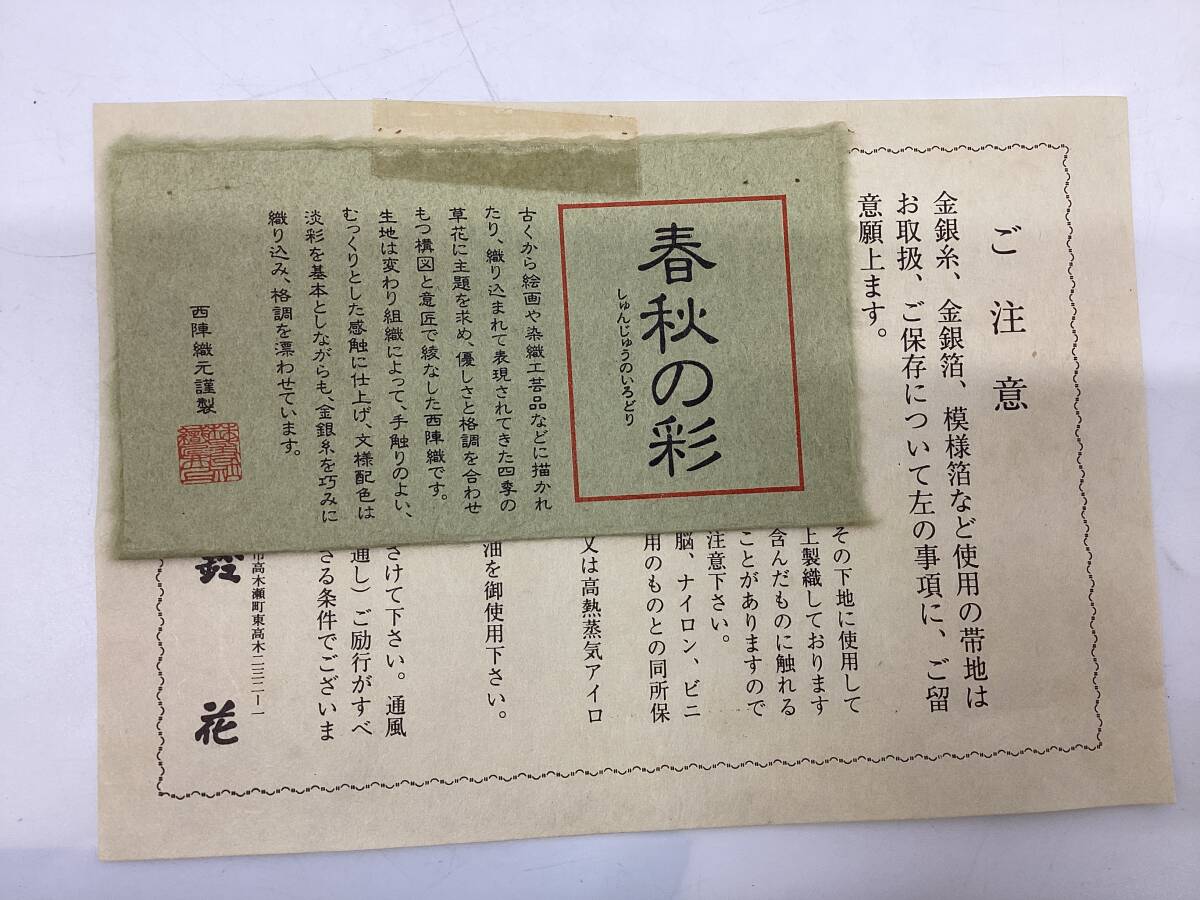 ご注意
金銀糸、金銀箔、模様箔など使用の帯地は
お取扱、ご保存について左の事項に、ご留
意願上ます。
その下地に使用して
上製織しております
含んだものに触れる
ことがありますので
注意下さい。
脳、ナイロン、ビニ
用のものとの同所保
又は高熱蒸気アイロ
油を御使用下さい。
さけて下さい。通風
通し）ご励行がすべ
さる条件でございま
市高木瀬町東高木二三二ー一
鈴花
春秋の彩
しゅんじゅうのいろどり
古くから絵画や染織工芸品などに描かれ
たり、織り込まれて表現されてきた四季の
草花に主題を求め、優しさと格調を合わせ
もつ構図と意匠で綾なした西陣織です。
生地は変わり組織によって、手触りのよい、
むっくりとした感触に仕上げ、文様配色は
淡彩を基本としながらも、金銀糸を巧みに
織り込み、格調を漂わせています。
西陣織元謹製